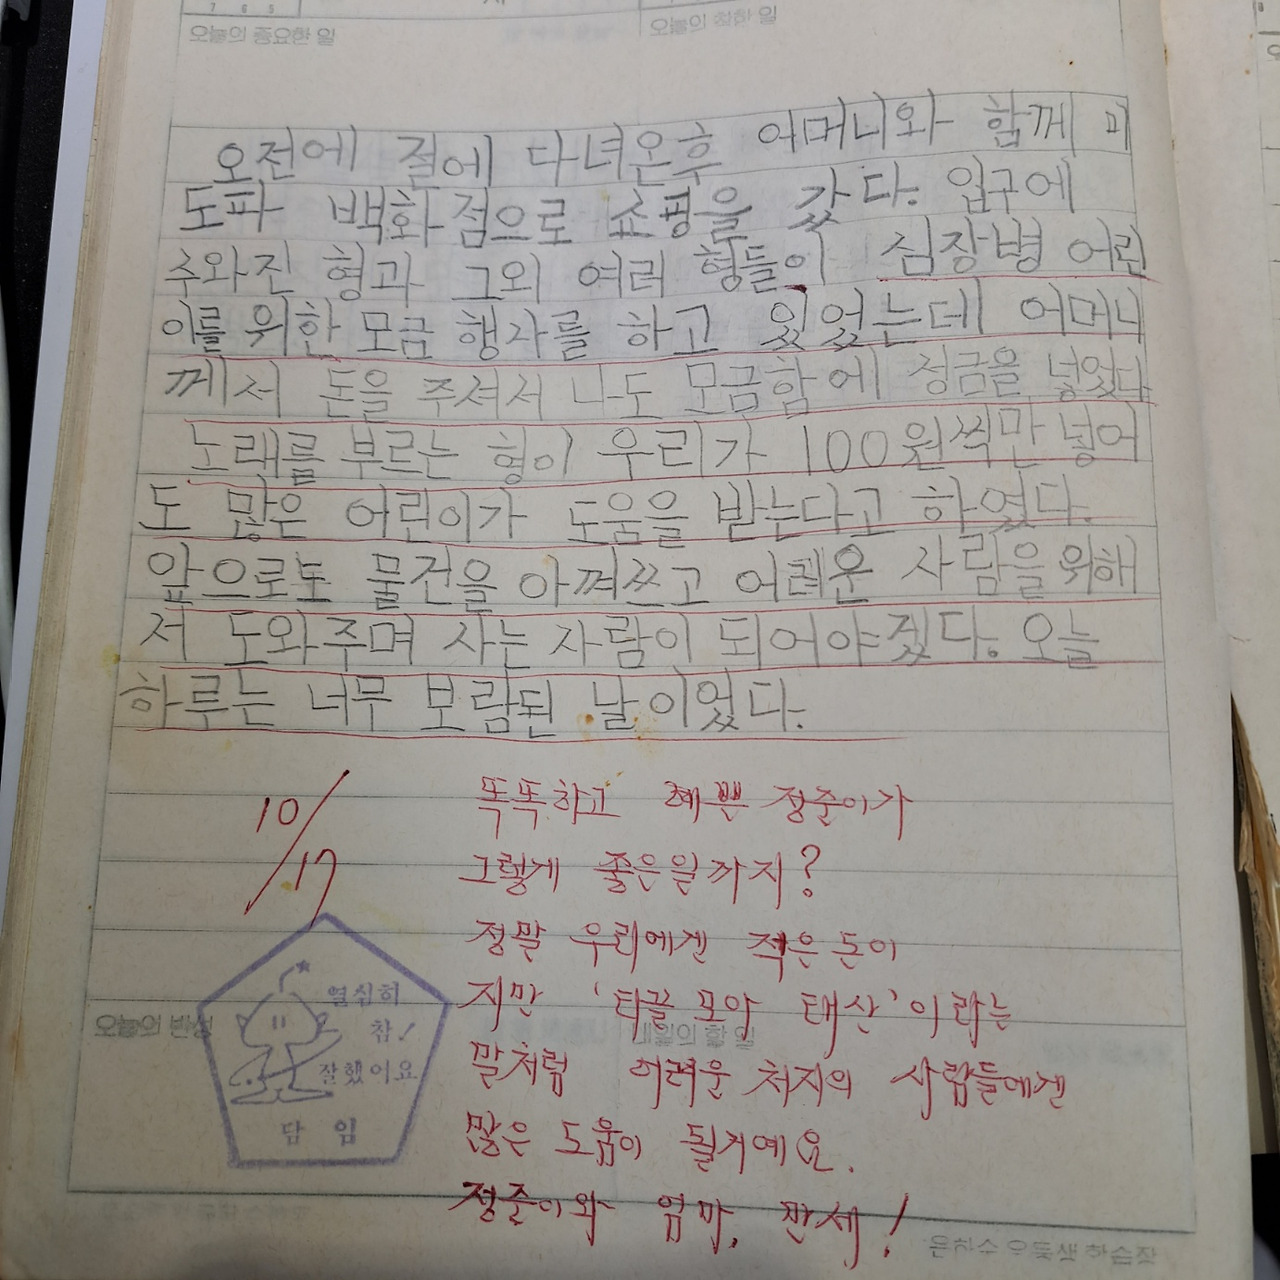 오전에 절에 다녀온후 어머니와 함께 미
도파 백화점으로 쇼핑을 갔다. 입구에
수와진 형과 그외 여러 형들이 심장병 어린
이를 위한 모금 행사를 하고 있었는데 어머니
께서 돈을 주셔서 나도 모금함에 성금을 넣었다
노래를 부르는 형이 우리가 100원씩만 넣어
도 많은 어린이가 도움을 받는다고 하였다.
앞으로도 물건을 아껴쓰고 어려운 사람을 위해
서 도와주며 사는 사람이 되어야겠다. 오늘
하루는 너무 보람된 날이었다.
10/17
똑똑하고 예쁜 정준이가
그렇게 좋은일까지?
정말 우리에겐 적은돈이
지만 '티끌 모아 태산'이라는
말처럼 어려운 처지의 사람들에겐
많은 도움이 될거예요.
정준이와 엄마, 만세!
열심히
참!
잘했어요
담 임